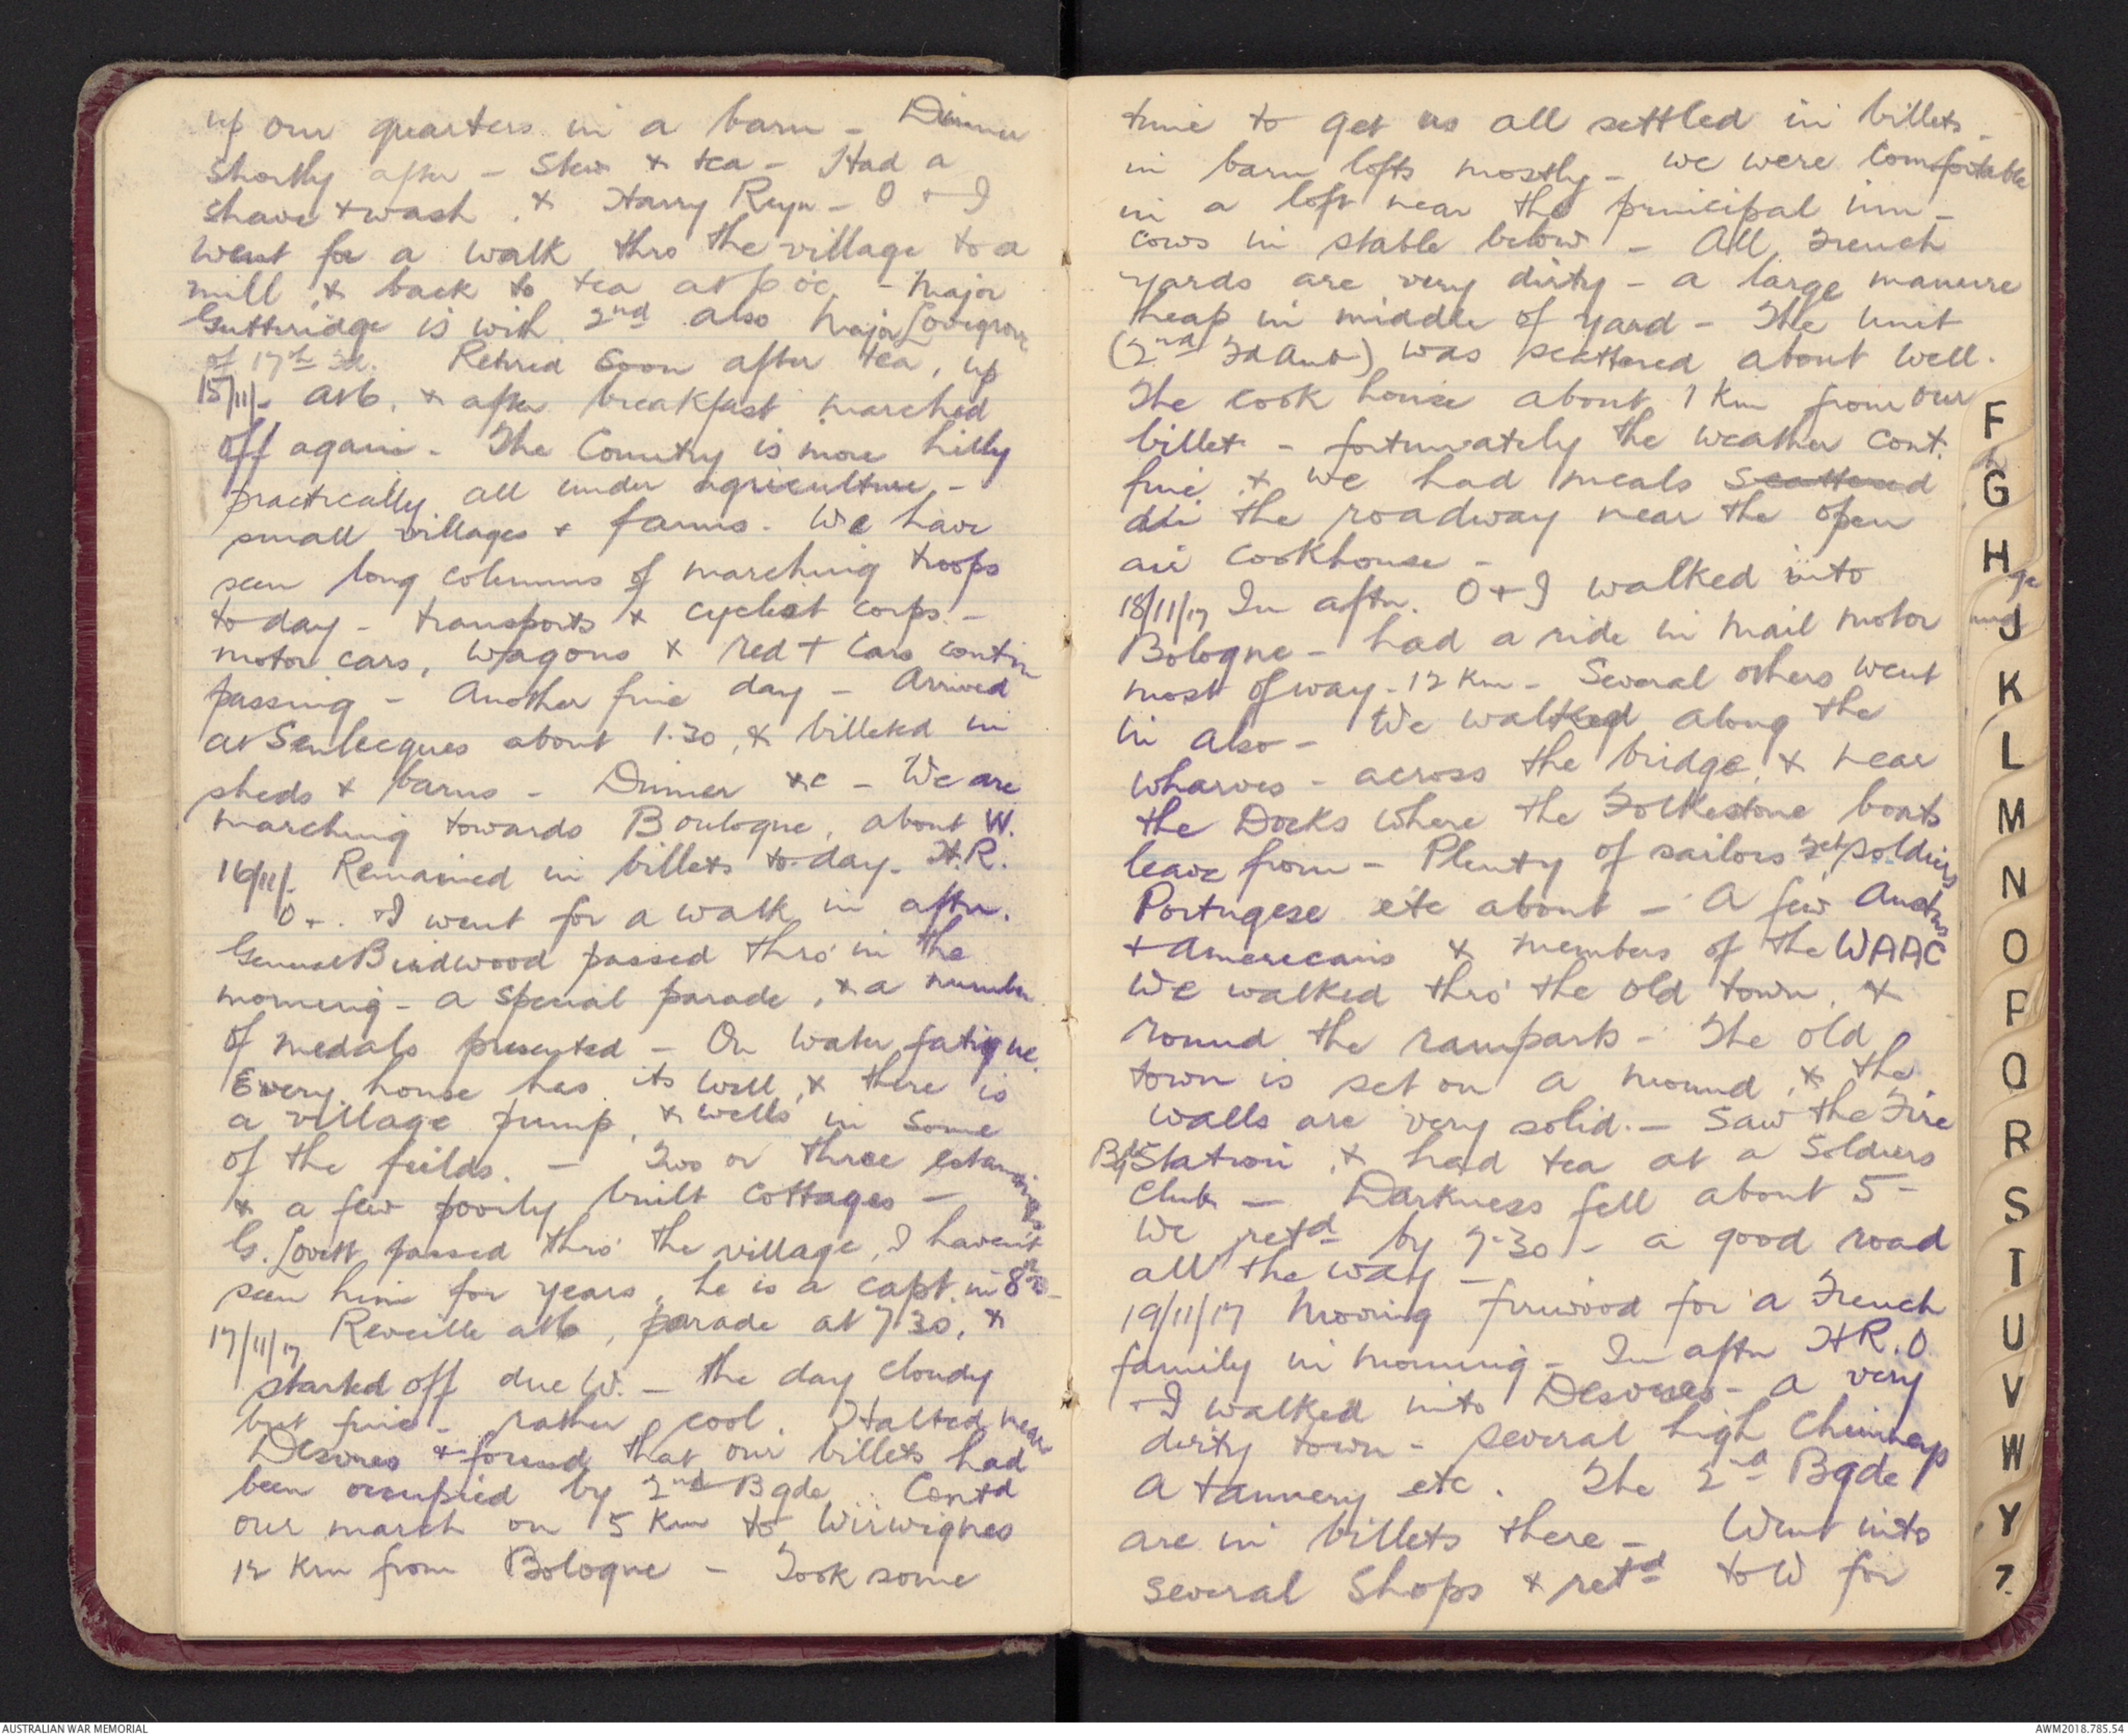 up our quarters in a barn - Dinner
shortly after - Stew & tea - Had a
shave & wash, & Harry Reyn - O & I
went for a walk thro the village to a
mill, & back to tea at 5 oc - Major
Gutteridge is with 2nd also Major Lovegrove
of 17th Fd. Retired soon after tea, up
15/11/- at 6, & after breakfast marched
off again - The Country is more hilly
practically all under agriculture -
small villages & farms - We have
seen long columns of marching troops
to day - transports & cyclist corps -
motor cars, wagons & red + Cars contin
passing - Another fine day - Arrived
at Senlecques about 1.30, & billeted in
sheds & barns - Dinner &c - We are
marching towards Boulogne, about W.
16/11/- Remained in billets to-day. H.R.
O & I went for a walk in aftn.
General Birdwood passed thro' in the
morning - a special parade, & a number
of medals presented - On water fatigue
Every house has its well, & there is
a village pump, & wells in some
of the feilds. - Two or three estaminets
& a few poorly built cottages -
G. Lovett passed thro' the village, I haven't
seen him for years, he is a capt. in 8th
17/11/17 Reveille at 6, parade at 7.30, &
started off due W. - the day cloudy
but fine - rather cool. Halted near
Desvres & found that our billets had
been occupied by 2nd Bgde. Contd
our march on 5 Km to Wirwignes
12 Km from Bologne - Took some
time to get us all settled in billets -
in barn lofts mostly - we were comfortable
in a loft near the principal inn -
cows in stable below - All French
yards are very dirty - a large manure
heap in middle of yard - The Unit
(2nd Fd Amb) was scattered about well.
The cook house about 1 Km from our
billet - fortunately the weather cont.
fine, & we had meals scattered
the roadway near the open
air cookhouse -
18/11/17 In aftn. O & I walked into
Bologne - had a ride in mail motor
most of way - 12 Km - Several others went
in also - We walked along the
wharves - across the bridge, & near
the Docks where the Folkestone boats
leave from - Plenty of sailors soldiers
Portugese etc about - A few Austns
& Americans & members of the WAAC
We walked thro' the old town, &
round the ramparts - The old
town is set on a mound, & the
walls are very solid. - Saw the Fire
Bgde Station, & had tea at a Soldiers
Club - Darkness fell about 5 -
We retd by 7.30 - a good road
all the way -
19/11/17 Moving firewood for a French
family in morning - In aftn H.R. O
& I walked into Desvres - a very
dirty town - several high chimneys
a tannery etc. The 2nd Bgde
are in billets there - Went into
several shops & retd to W for
F
G
H
J
K
L
M
N
O
P
Q
R
S
T
U
V
W
Y
Z
AUSTRALIAN WAR MEMORIAL
AWM2018.785.54